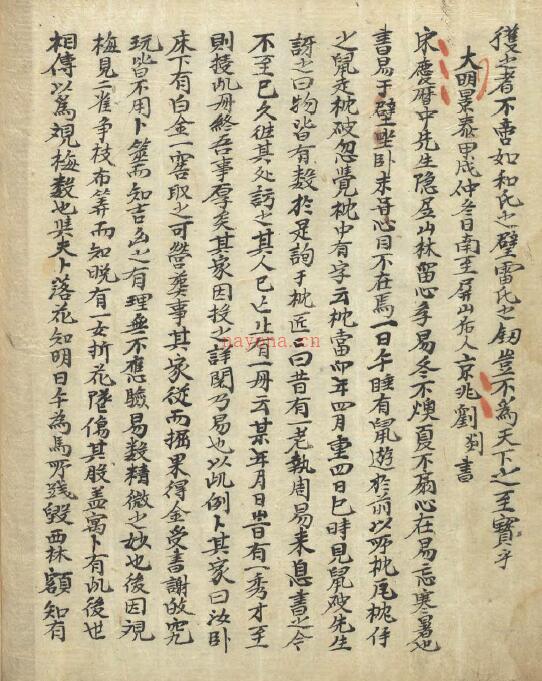 獲之者不啻如和氏之璧雷氏之劔豈不為天下之至寶乎
大明景泰甲戌仲冬日南至屏山拓人京兆劉剡書
宋慶曆中先生隐居山林留心孝易冬不爐夏不扇心在易忘寒暑也
書易于壁坐卧未嘗心目不在焉一日午睡有鼠遊於前以所枕瓦枕仔
之鼠走枕破忽覺枕中有字云枕當卯年四月重四日巳時見鼠破先生
訝之曰物皆有数於是詢于枕匠匠曰昔有一老執周易来息書之令
不至已久徃其处訪之其人已亡止有一册云某年月日曽有一秀才至
則授此册終吾事厚矣其家因授之詳閱乃易也以此例卜其家曰汝卧
床下有白金一窖取之可營葬事其家從而掘果得金受書謝敀究
玩皆不用卜筮而知吉凶之有理無不應驗易数精微之妙也後因視
梅見二雀争枝布筭而知晚有一女折花墜傷其股盖寓卜有此後世
相傳以為視梅数也與夫卜落花知明日午為馬所殘毁西林額知有
nayona.cn